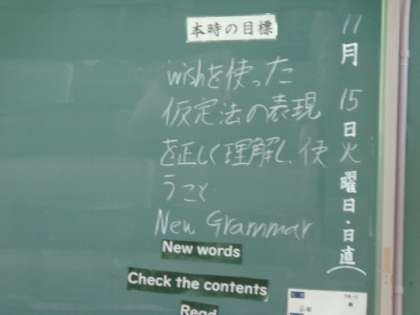 11月15日火曜日・日直(
本時の目標
wishを使った
仮定法の表現
を正しく理解し、使
うこと
New Grammar
New words
Check the contents
Read